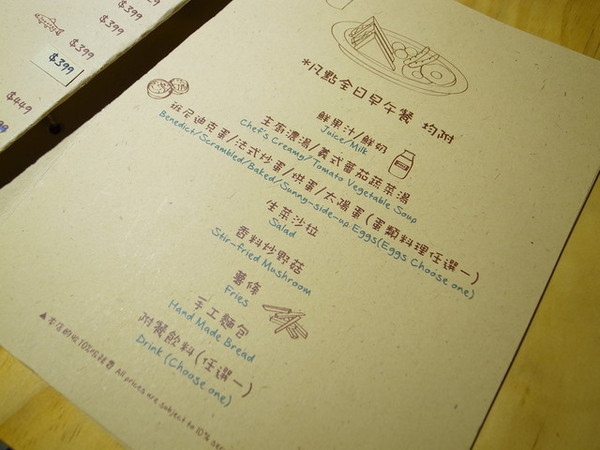 $399
$399
$399
$399
$449
*凡點全日早午餐 均附
鮮果汁/鮮奶
Juice/Milk
主廚濃湯/義式蕃茄蔬菜湯
Chef's Creamy/Tomato Vegetable Soup
班尼迪克蛋/法式炒蛋/烘蛋/太陽蛋(蛋類料理任選一)
Benedict/Scrambled/Baked/Sunny-side-up Eggs(Eggs Choose one)
生菜沙拉
Salad
香料炒野菇
Stir-fried Mushroom
薯條
Fries
手工麵包
Hand Made Bread
附餐飲料(任選一)
Drink (Choose one)
▲本店酌收10%服務費 All prices are subject to 10% ser